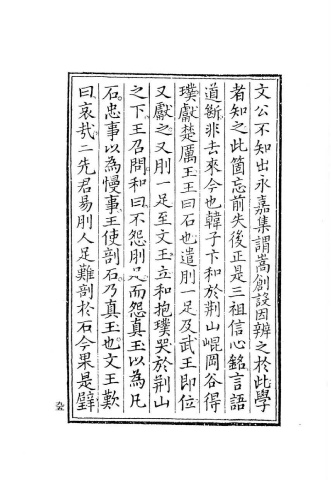 文公不知出永嘉集謂嵩創設因辨之於此學
者知之此箇忘前失後正是三祖信心銘言語
道斷非去來今也韓子卞和於荆山崐岡谷得
璞獻楚厲王王曰石也遣刖一足及武王即位
又獻之又刖一足至文王立和抱璞哭於荆山
之下王召問和曰不怨刖足而怨真玉以為凡
石忠事以為慢事王使剖石乃真玉也文王歎
曰哀哉二先君易刖人足難剖於石今果是璧